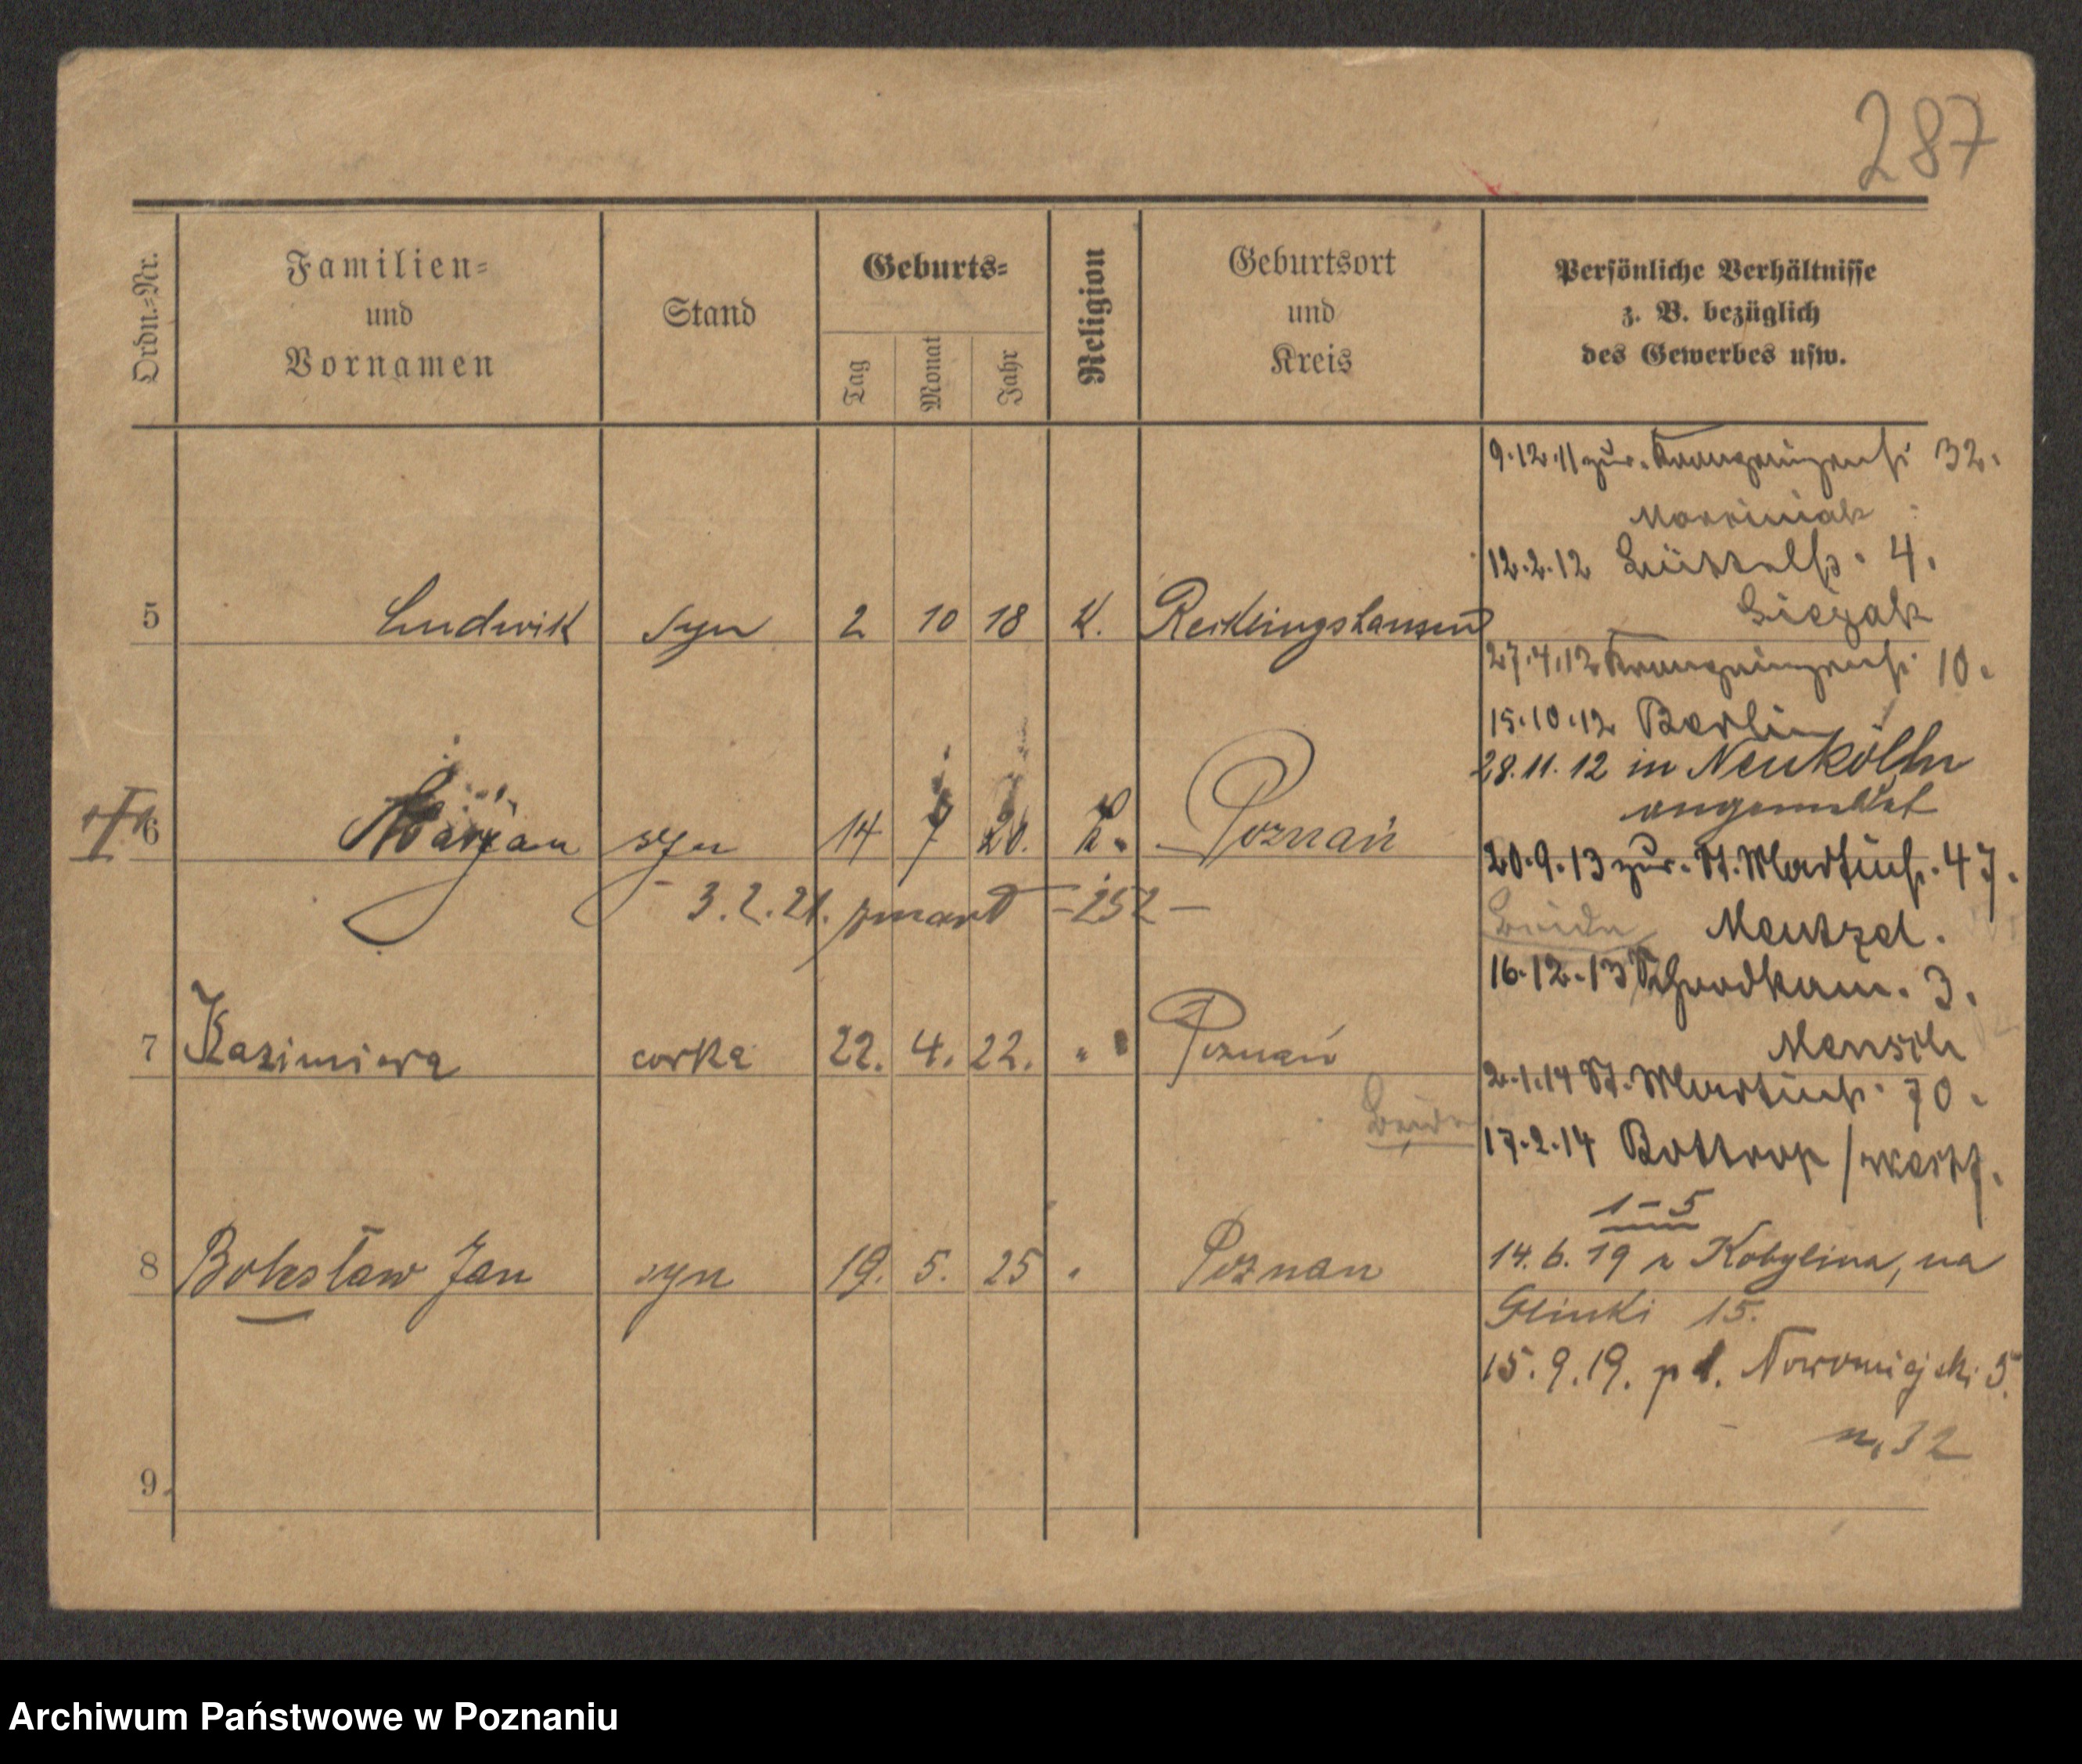 287
Ordn.=Nr.
Familien=
und
Vornamen
Stand
Geburts=
Tag
Monat
Jahr
Religion
Geburtsort
und
Kreis
Persönliche Verhältnisse
z. B. bezüglich
des Gewerbes usw.
9.12.11 zur. Kronprinzenst. 32.
12.2.12 4.
5 Ludwik syn 2 10 18 K. Recklingshausen
27.4.12 Kronprinzenst. 10.
15.10.12 Berlin
28.11.12 in Neukölln
angemeldet
6 Marjan syn 14 7 20. K. Poznań
20.9.13 zur. St. Martinst. 47.
3.2.21. zmarł - 252 -
Beide Mentzel.
16.12.13 3.
Mensch
7 Kazimiera corka 22. 4. 22. " Poznań
2.1.14 St. Martinst. 70.
Beide
17.2.14 Bottrop / Westf.
1-5
14.6.19 z Kobylina, na
8 Bolesław Jan syn 19. 5. 25 " Poznan
Glinki 15.
15.9.19. pl. Nowomiejski 5.
m. 32
9
Archiwum Państwowe w Poznaniu